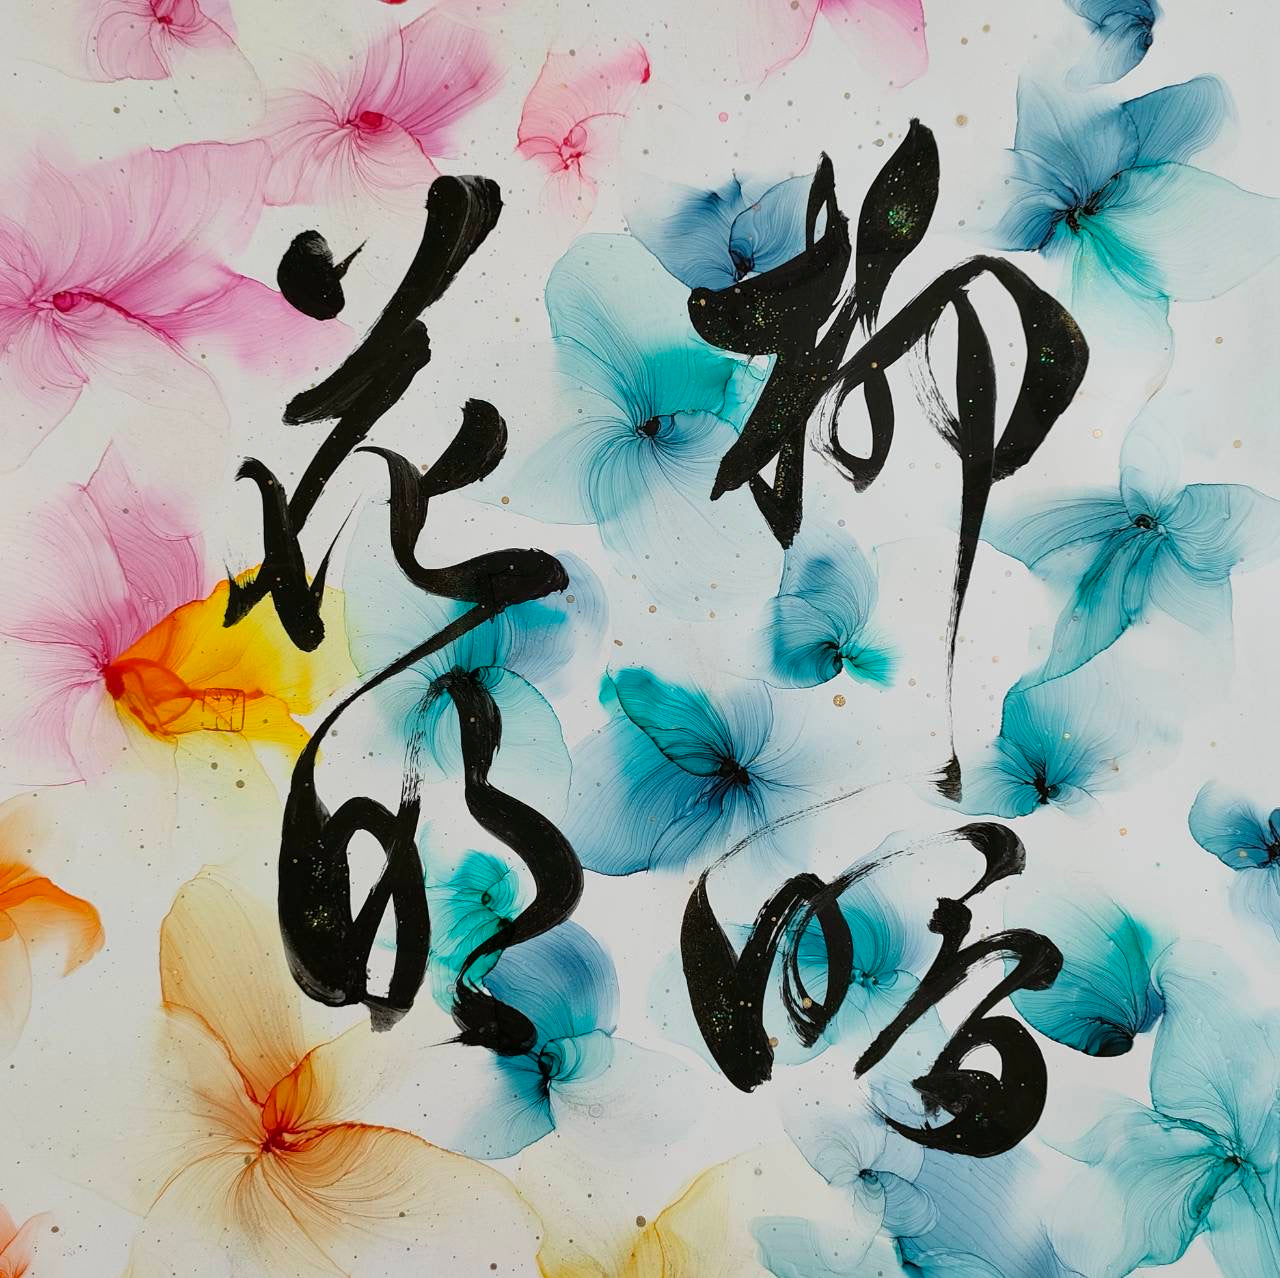 柳暗
花明